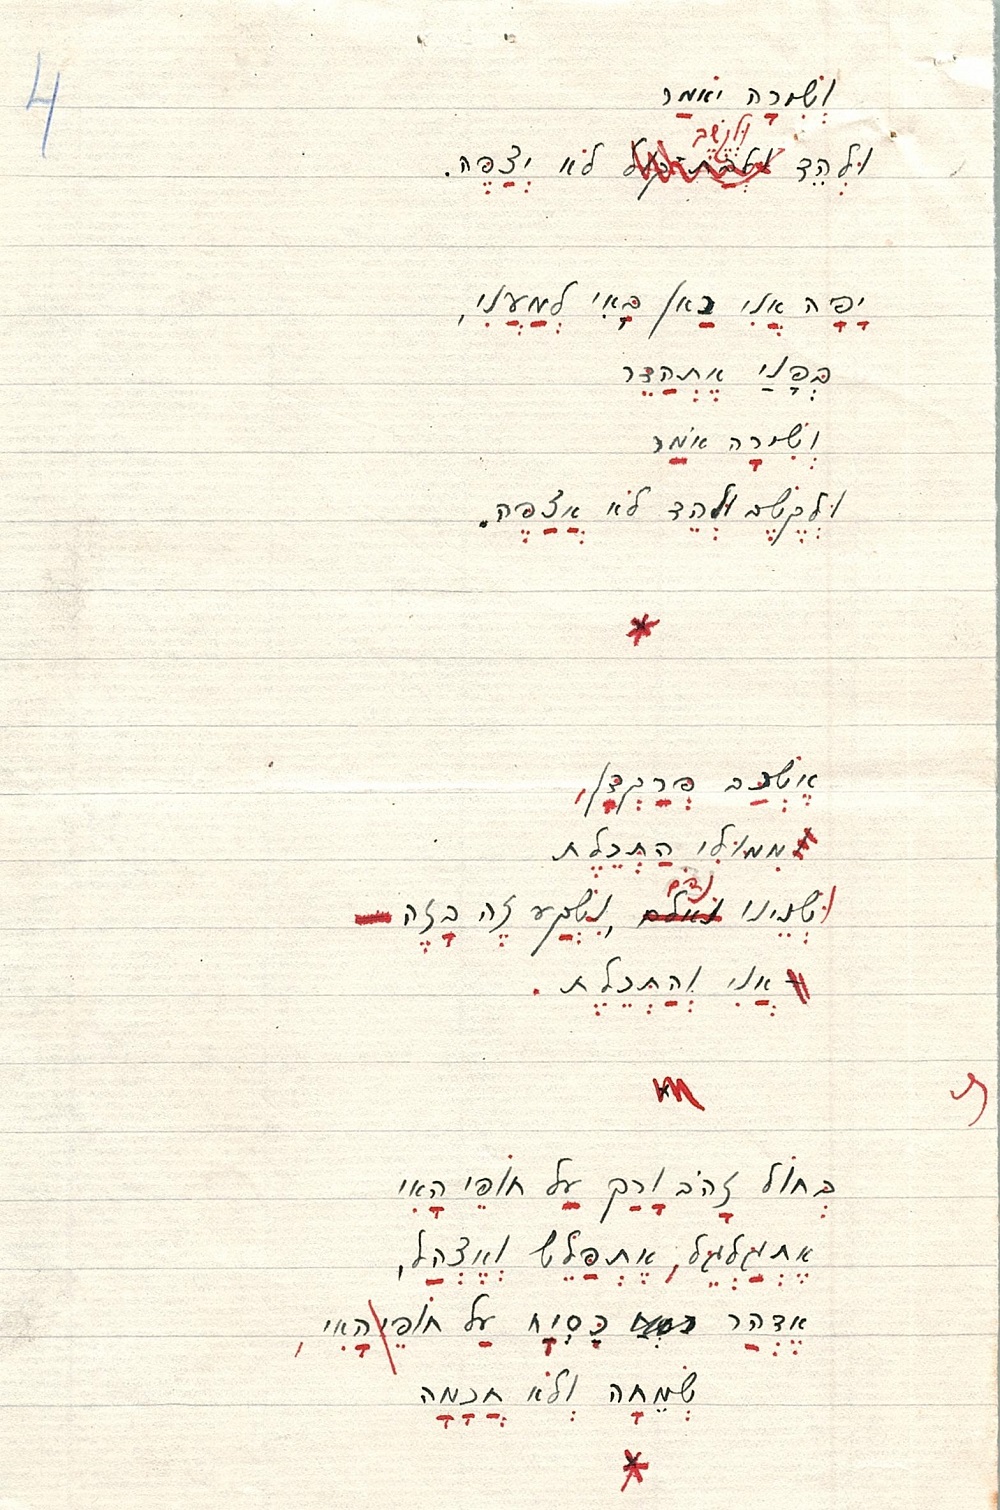 4
וְשִׁירָה יֹאמַר
וּלְקֶשֶׁב
וּלְהֵד לֹא יְצַפֶּה.
יָפָה אֲנִי כַּאן בָּאִי לְמַעֲנִי,
בְּפָנַי אֶתְהַדֵּר
וְשִׁירָה אֹמַר
וּלְקֶשֶׁב וּלְהֵד לֹא אֲצַפֶּה.
*
אֶשְׁכַּב פְּרַקְדָּן,
מִמּוּלִי הַתְּכֵלֶת
נִדֹּם
וּשְׁנֵינוּ, נִשְׁקַע זֶה בָּזֶה
אֲנִי וְהַתְּכֵלֶת.
ת
בְּחוֹל זָהֹב וָרַק עַל חוֹפֵי הָאִי
אֶתְגַּלְגֵּל, אֶתְפַּלֵּשׁ וְאֶצְהַל,
אֶדְהַר כַּסְיָח עַל חוֹפֵי הָאִי,
שְׂמֵחָה וְלֹא חֲכָמָה
*